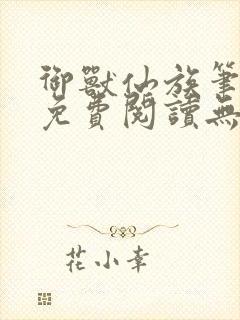 御獸仙族筆
免費閱讀無
花小幸